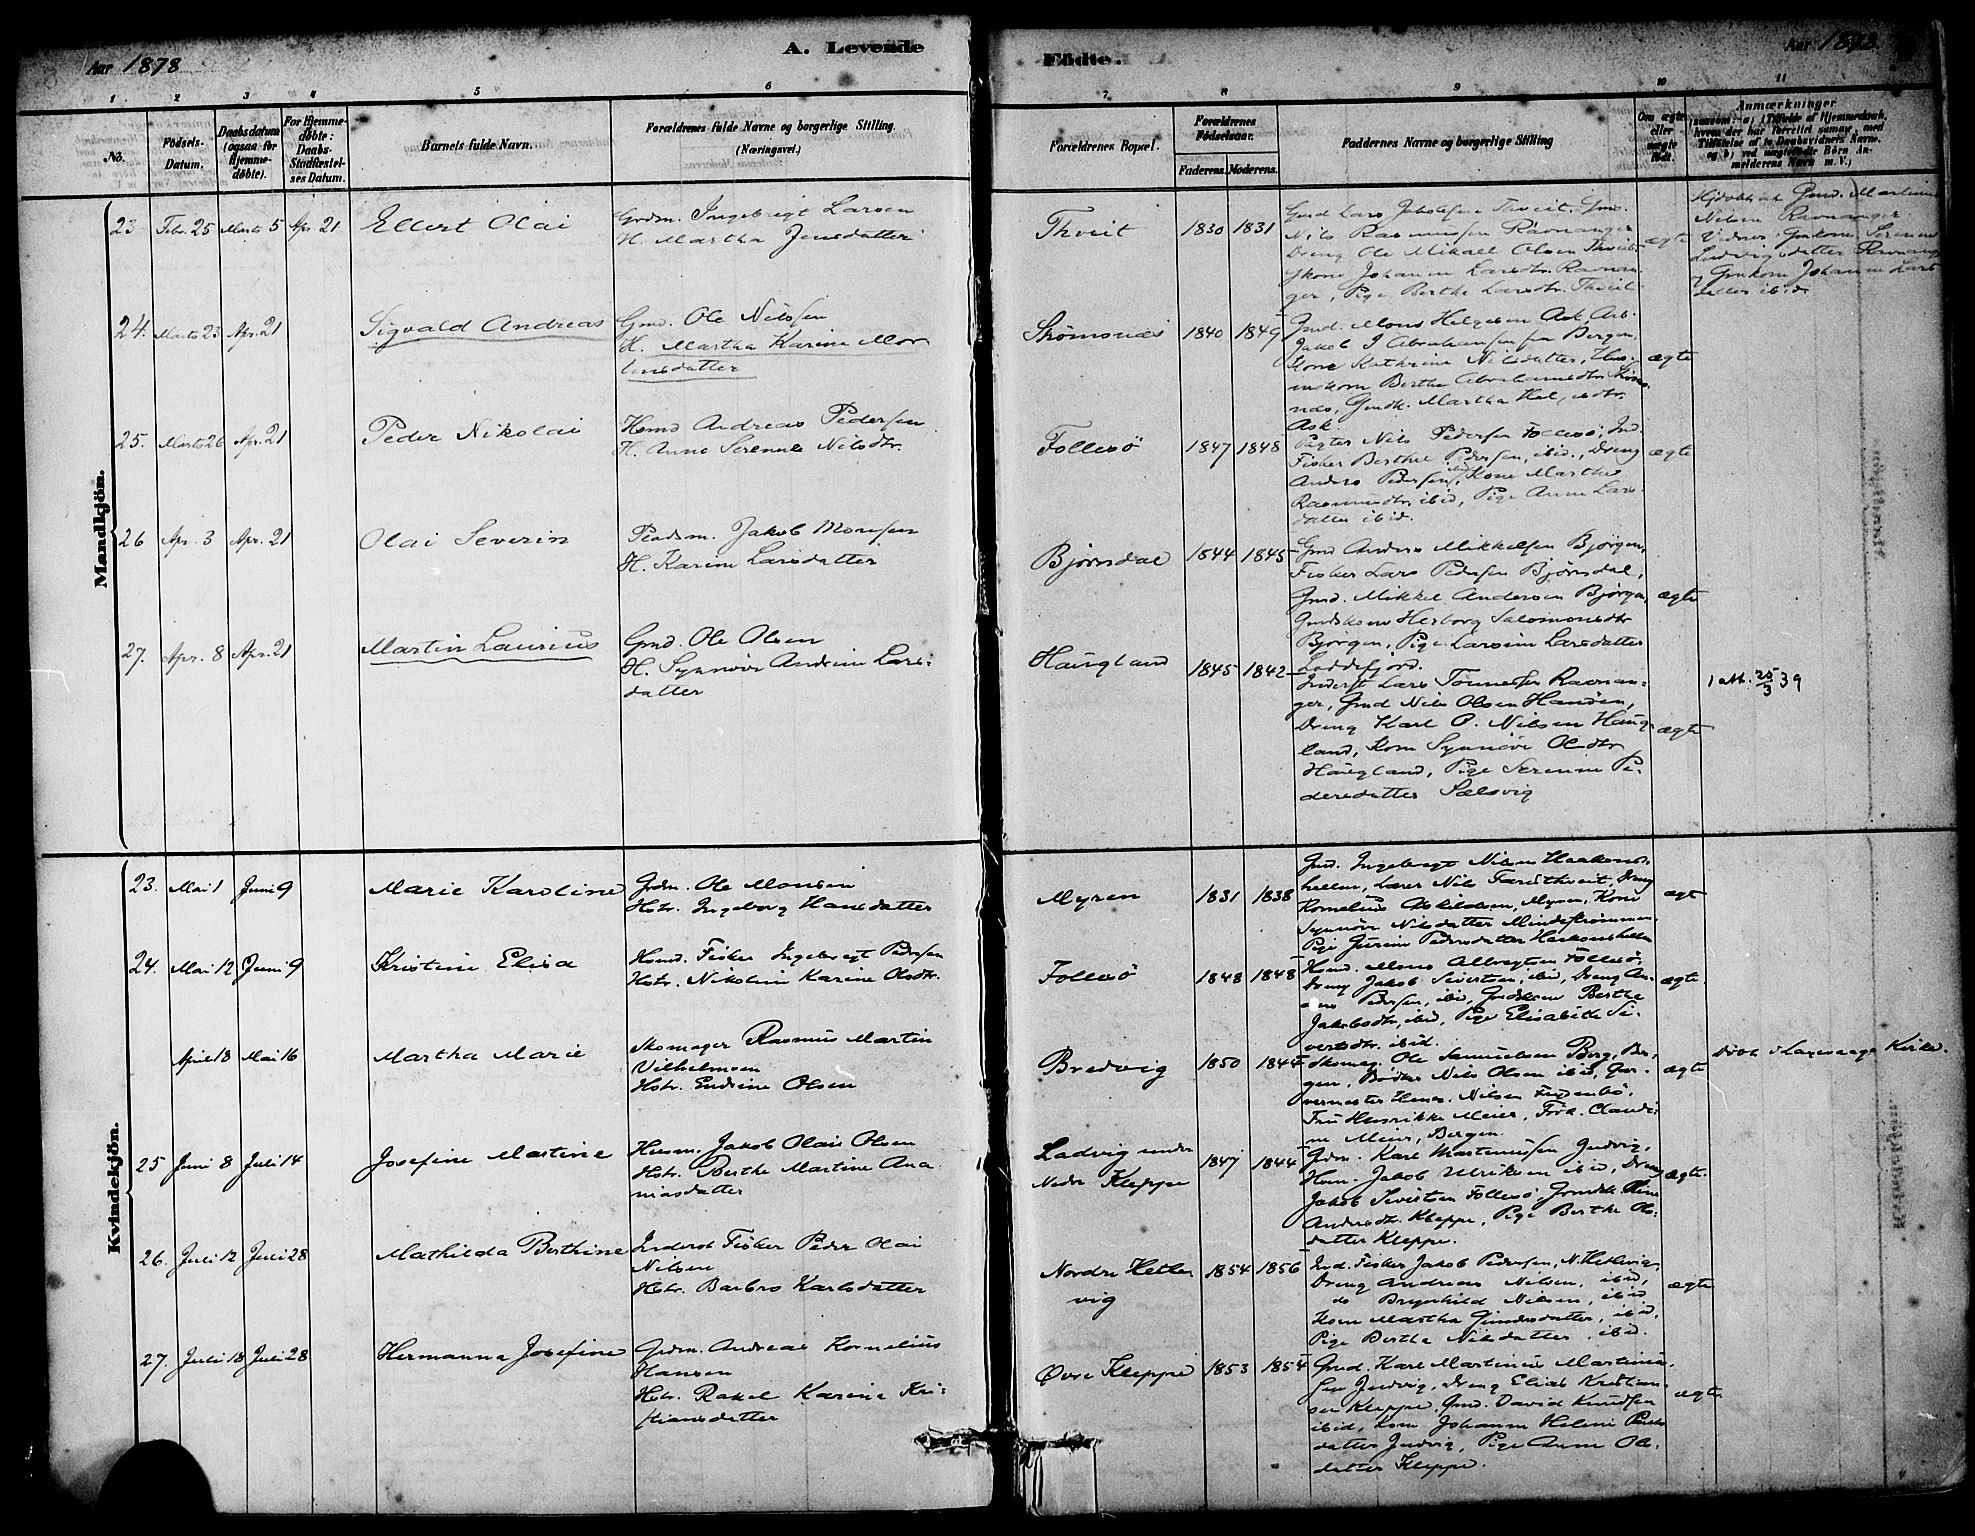 Aar 1878
A. Levende
Födte.
Aar 1878.
1 2 3 4 5 6
7 8 9 10 11
No.
Födsels-Datum.
Daabsdatum (ogsaa för Hjemme-döbte).
For Hjemme-döbte: Daabs-Stadfæstel-ses Datum.
Barnets fulde Navn.
Forældrenes fulde Navne og borgerlige Stilling.
(Næringsvei.)
Forældrenes Bopæl.
Forældrenes Födselsaar.
Faderens. Moderens.
Faddernes Navne og borgerlige Stilling
Om ægte eller uægte födt.
Anmærkninger
Mandkjön.
23 Febr. 25 Marts 5 Apr. 21 Ellert Olai
Grdm. Ingebrigt Larsen
H. Martha Jensdatter
Thveit 1830 1831
Gmd Lars Jakobsen Thveit, Gmd.
Nils Rasmussen Ravnanger
Dreng Ole Mikael Olsen Thveit
Kone Johanne Larsdtr. Ravnan-
ger, Pige Berthe Larsdtr. Thveit
ægte
Hjdøbt af Gmd. Martinus
Nilsen Ravnanger
Vidner: Gmkone Serenne
Ludvigsdatter Ravnang
og Gmkone Johanne Lars
datter ibid.
24. Marts 23 Apr. 21 Sigvald Andreas
Gmd. Ole Nilssen
H. Martha Karine Mor
tensdatter
Strømsnæs 1840 1849
Gmd. Mons Helgesen Ask, Arb.
Jakob J Abrahamsen fra Bergen,
Kone Kathrine Nilsdatter, Hus-
mdkone Berthe Abrahamsdtr. Strøms
næs, Gmdk. Martha
Ask.
ægte
25. Marts 26 Apr. 21 Peder Nikolai
Hsmd Andreas Pedersen
H. Anne Serenne Nilsdtr.
Follesø 1847 1848
Pagter Nils Pedersen Follesø, Ind.
Fisker Berthel Pedersen, ibid., Dreng
Anders Pedersen ibid, Kone Marthe
Rasmusdtr. ibid, Pige Anne Lars
datter ibid.
ægte
26 Apr. 3 Apr. 21 Olai Severin
Pladsm. Jakob Monsen
H. Karine Larsdatter
Bjørnsdal 1844 1845
Gmd Anders Mikkelsen Bjørgen,
Fisker Lars Pedersen Bjørnsdal,
Gmd. Mikkel Andersen Bjørgen,
Gmdskone Herborg Salomonsdtr
Bjørgen, Pige Larsine Larsdatter
Loddefjord.
ægte
27. Apr. 8 Apr. 21 Martin Laurius
Gmd. Ole Olsen
H. Synnøve Andrine Lars-
datter
Haugland 1845 1842
Inderst Lars Tønnessen Ravnan-
ger, Gmd Nils Olsen Handøen,
Dreng Karl P. Nilsen Haug-
land, Kone Synnøve Olsdtr
Haugland, Pige Serenne Pe-
dersdatter Sælsvig
ægte
1 att. 25/3 39
Kvindekjön.
23. Mai 1 Juni 9 Marie Karoline
Grdm. Ole Monsen
Hstr. Ingeborg Hansdatter
Myren 1831 1838
Gmd. Ingebregt Nilsen Haakons-
hellen, Lærer Nils Thveit, Dreng
Kornelius Askildsen, Myren, Kone
Synnøve Nilsdatter Mindestrømmen,
Pige Gurine Pedersdatter Haakonshellen
ægt
24. Mai 12 Juni 9 Kristine Elisa
Hsmd. Fisker Ingebregt Pedersen
Hstr. Nikoline Karine Olsdtr.
Follesø 1848 1848
Hsmd. Mons Albregtsen Follesø,
Dreng Jakob Sivertsen, ibid, Dreng An-
ders Pedersen, ibid, Gmdskone Berthe
Jakobsdtr, ibid, Pige Elisabeth Si-
vertsdtr. ibid.
ægte
April 18 Mai 16 Martha Marie
Skomager Rasmus Martin
Vilhelmsen
Hstr. Endrine Olsen
Bredvig 1850 1844
Skomag. Ole Samuelsen Berg, Ber-
gen, Bødker Nils Olsen ibid, Gar-
vermester Henr. Nilsen
Fru Henrikke Meier, Frøk. Claudi-
ne Meier, Bergen.
ægte
Døbt i Laxevaags Kirke.
25 Juni 8 Juli 14 Josefine Martine
Husm. Jakob Olai Olsen
Hstr. Berthe Martine Ana-
niasdatter
Ladvig under
Nedre Kleppe 1847 1844
Grdm. Karl Martinussen Judvig,
Hsm. Jakob Ulriksen ibid, Dreng
Jakob Sivertsen Follesø, Grmdsk. Stine
Andersdtr. Kleppe, Pige Berthe Ols-
datter Kleppe.
ægte
26. Juli 12 Juli 28 Mathilda Berthine
Inderst Fisker Peder Olai
Nilsen
Hstr. Barbro Karlsdatter
Nordre Hetle
vig 1854 1856
Ind. Fisker Jakob Pedersen, N. Hetlevig,
Dreng Andreas Nilsen, ibid,
do Brynhild Nilsen, ibid
Kone Martha Gundersdatter, ibid,
Pige Bertha Nilsdatter, ibid.
ægte
27. Juli 18 Juli 28 Hermanna Josefine
Grdm. Andreas Kornelius
Hansen
Hstr. Rakel Karine Kri-
stiansdatter
Øvre Kleppe 1853 1854
Gmd. Karl Martinus Martinus-
sen Judvig, Dreng Elias Kristian-
sen Kleppe, Gmd. David Knudsen
ibid, Kone Johanne Helene Peders
datter Judvig, Pige Anne Ols-
datter Kleppe.
ægte